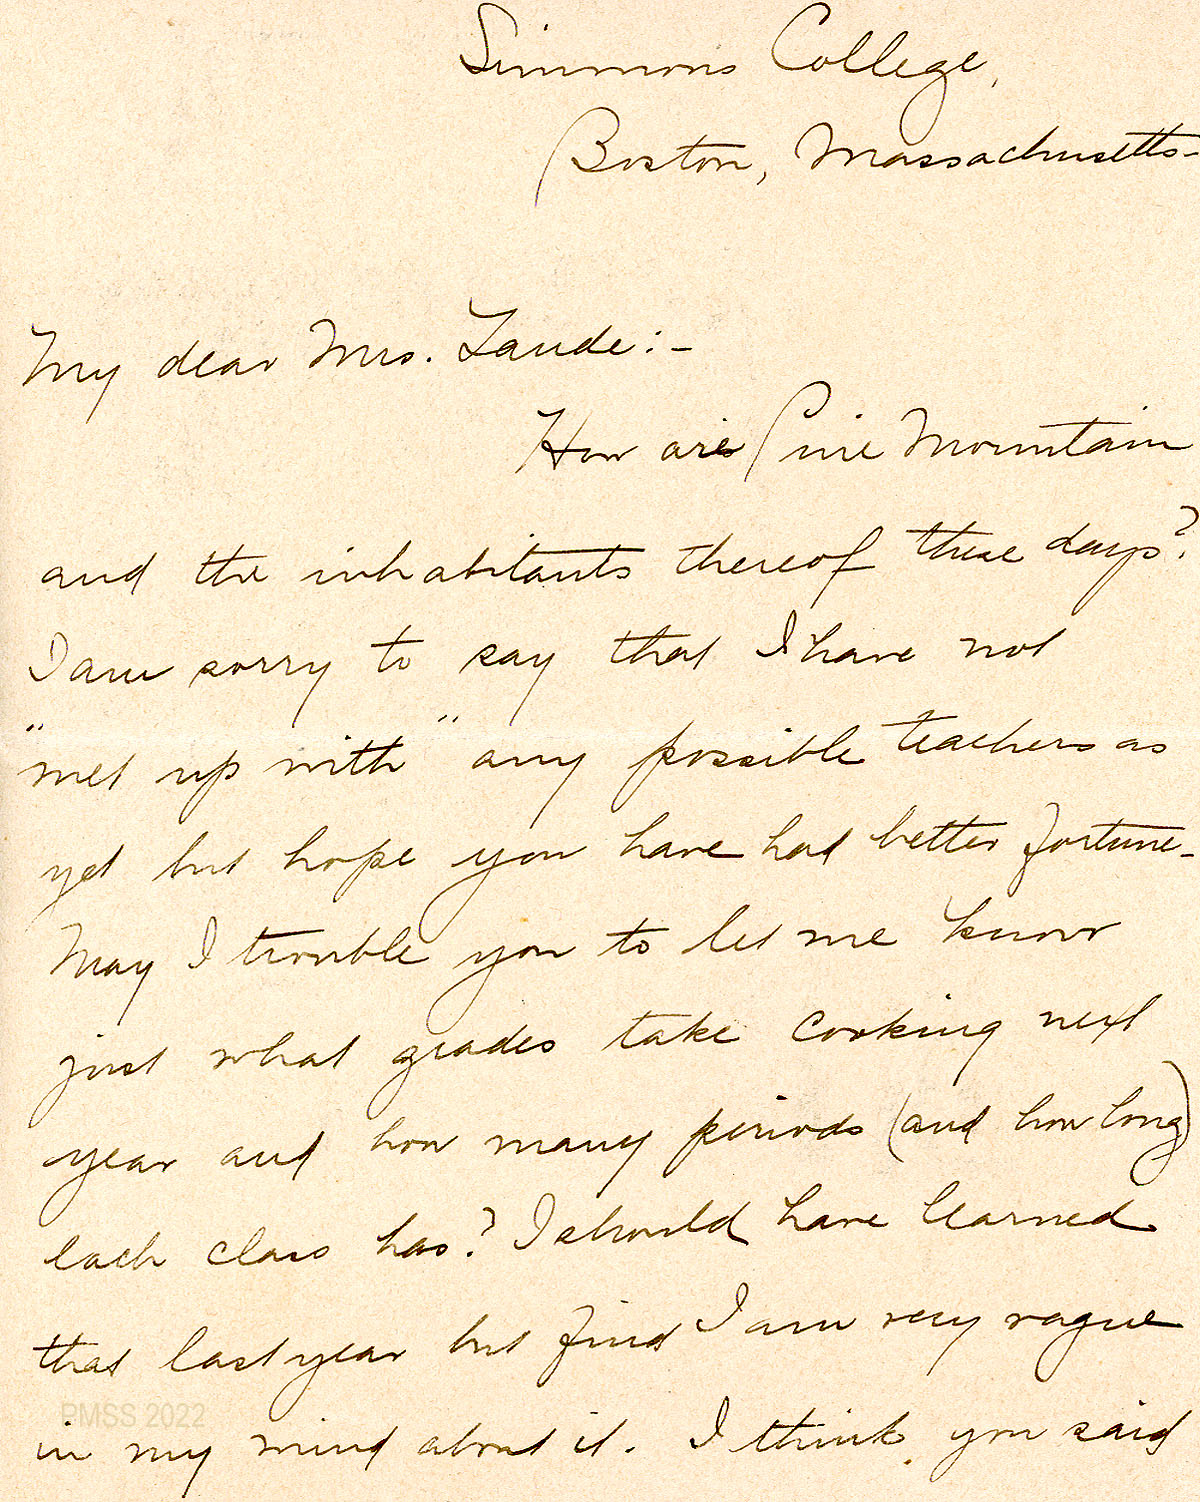 Simmons College,
Boston, Massachusetts-
My dear Mrs. Zande:-
How are Pine Mountain
and the inhabitants thereof these days?
I am sorry to say that I have not
"met up with" any possible teachers as
yet but hope you have had better fortune-
May I trouble you to let me know
just what grades take cooking next
year and how many periods (and how long)
each class has? I should have learned
that last year but find I am very vague
PMSS 2022
in my mind about it. I think you said